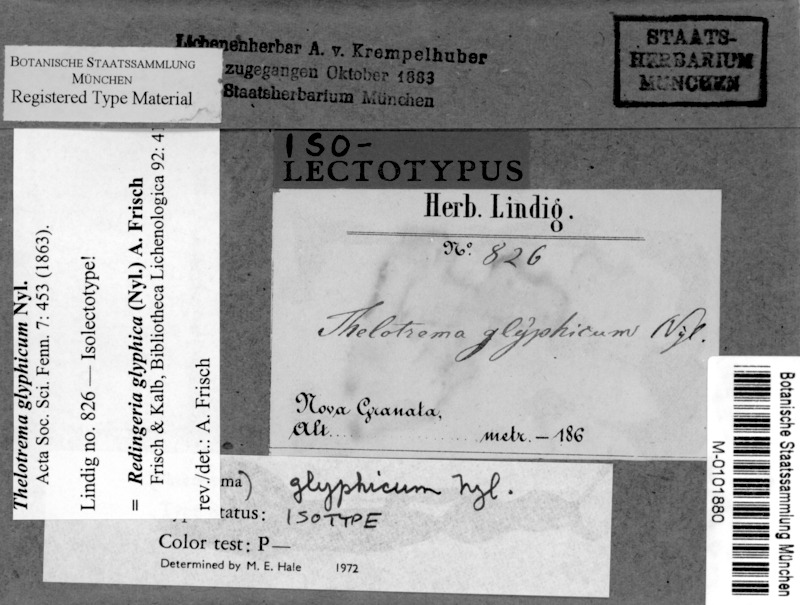 Lichenenherbar A. v. Krempelhuber
zugegangen Oktober 1883
Staatsherbarium München
STAATS-
HERBARIUM
MÜNCHEN
BOTANISCHE STAATSSAMMLUNG
MÜNCHEN
Registered Type Material
ISO-
LECTOTYPUS
Herb. Lindig.
No. 826
Thelotrema glyphicum Nyl.
Nova Granata,
Alt. metr. — 186
Thelotrema glyphicum Nyl.
Acta Soc. Sci. Fenn. 7: 453 (1863).
Lindig no. 826 — Isolectotype!
= Redingeria glyphica (Nyl.) A. Frisch
Frisch & Kalb, Bibliotheca Lichenologica 92: 4
rev./det.: A. Frisch
glyphicum Nyl.
ISOTYPE
Color test: P—
Determined by M. E. Hale 1972
Botanische Staatssammlung München
M-0101880